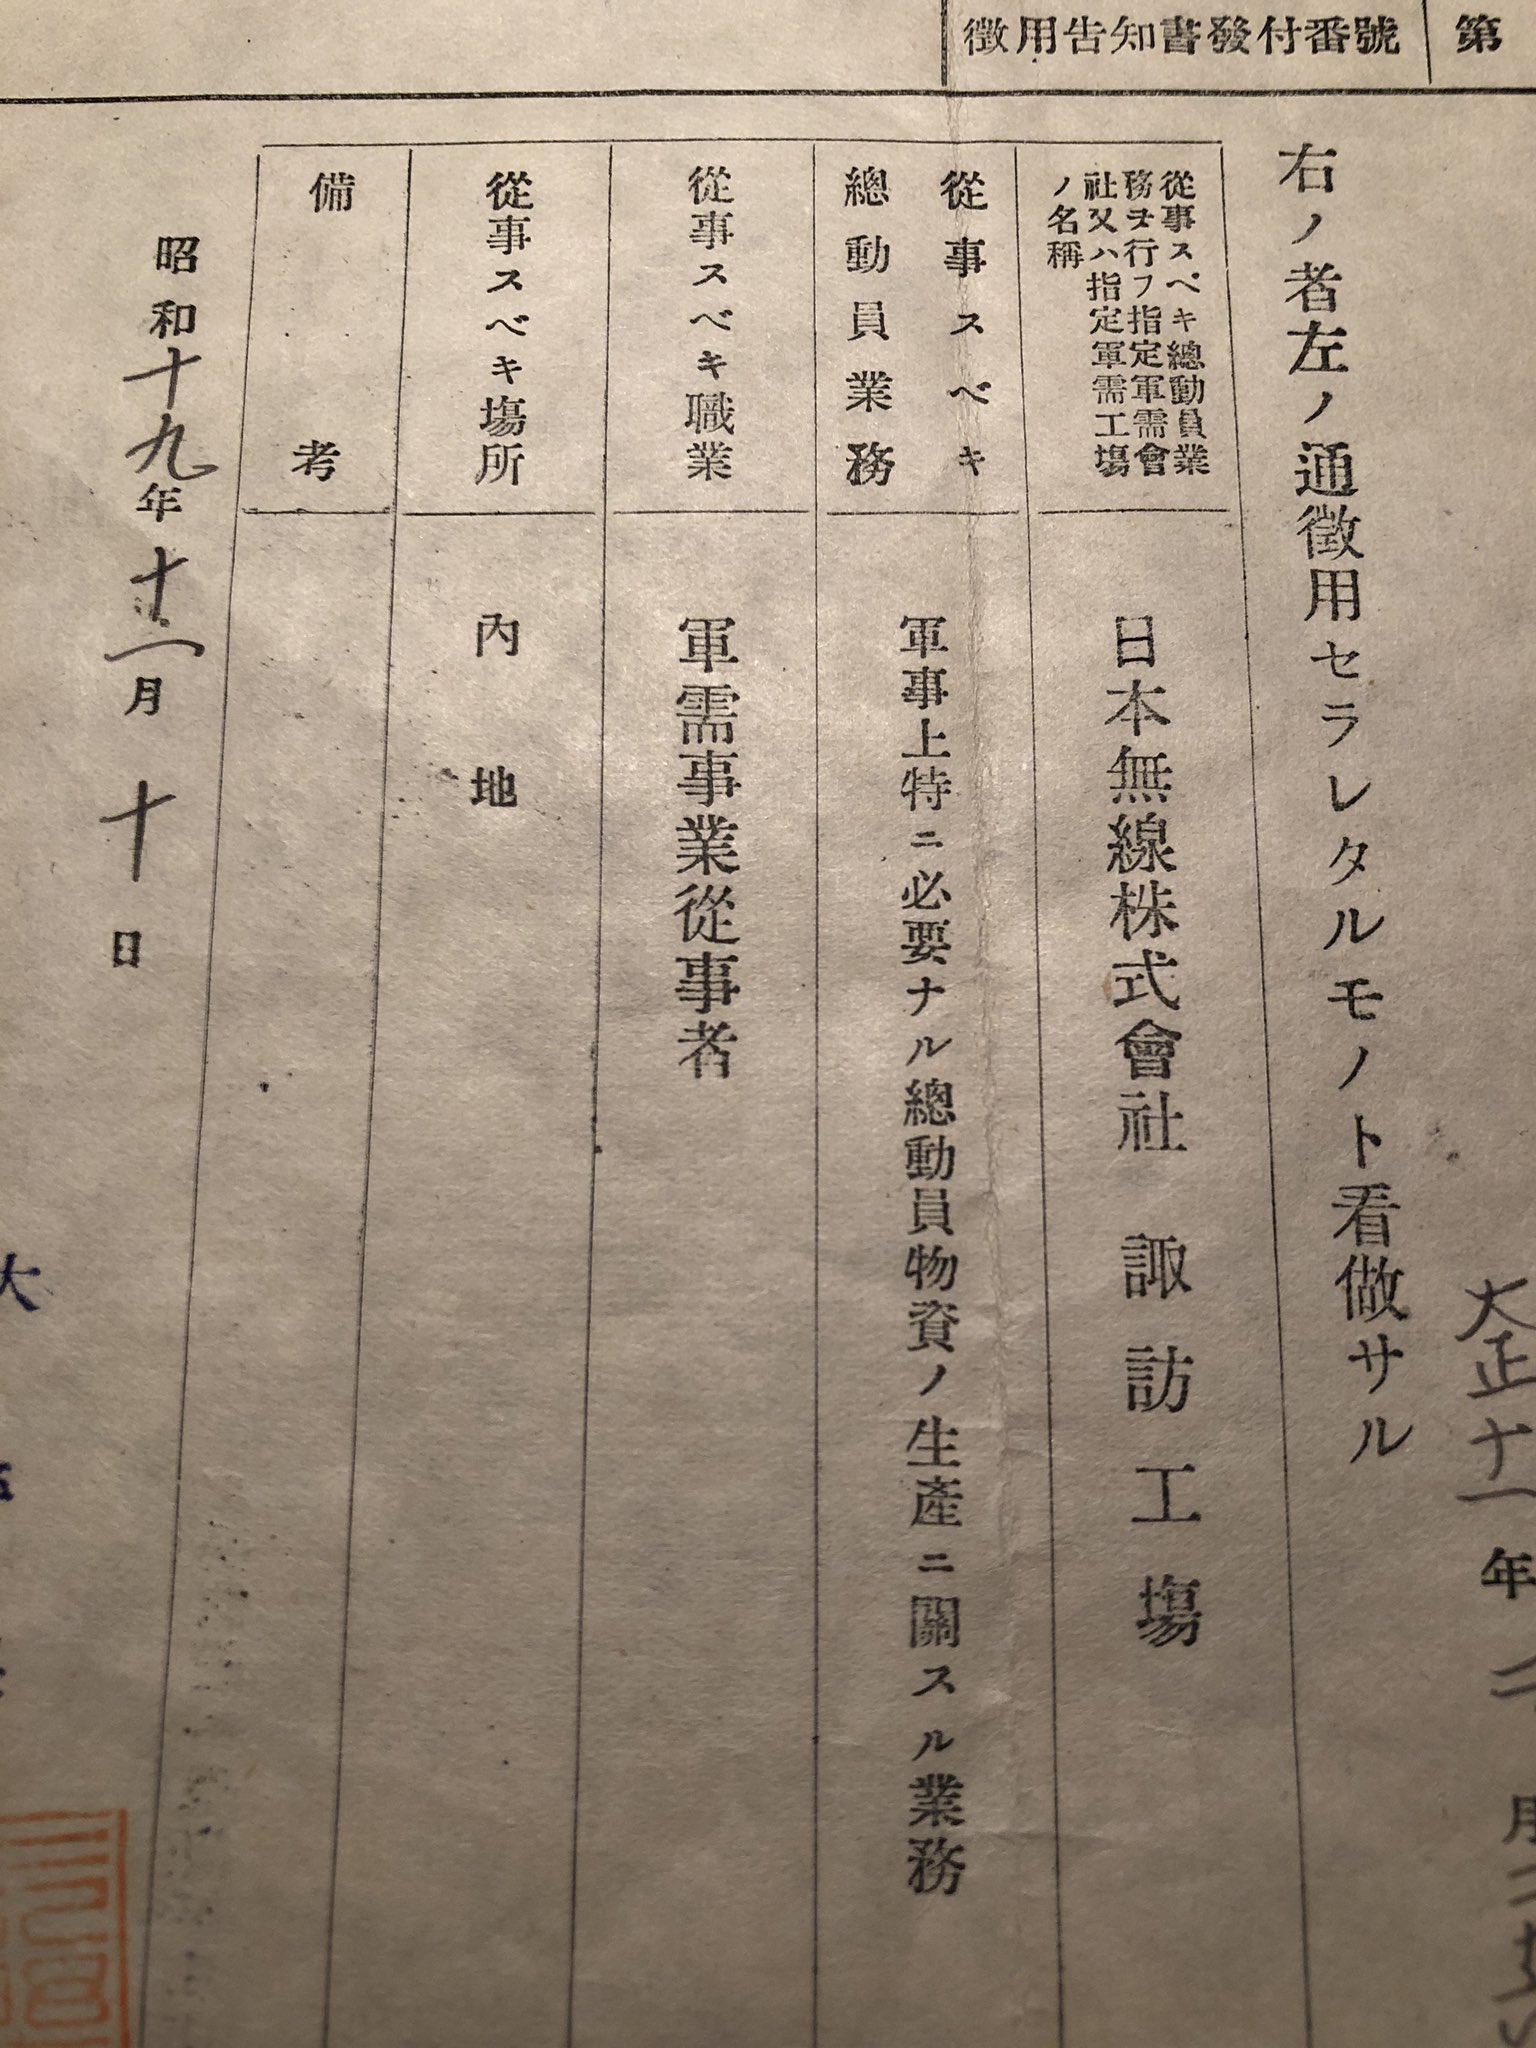 徵用吿知書發付番號
第
大正十一年
月
右ノ者左ノ通徵用セラレタルモノト看做サル
從事スベキ總動員業
務ヲ行フ指定軍需會
社又ハ指定軍需工場
ノ名稱
日本無線株式會社 諏訪工場
從事スベキ
總動員業務
軍事上特ニ必要ナル總動員物資ノ生產ニ關スル業務
從事スベキ職業
軍需事業從事者
從事スベキ場所
內地
備考
昭和十九年十二月十日
大